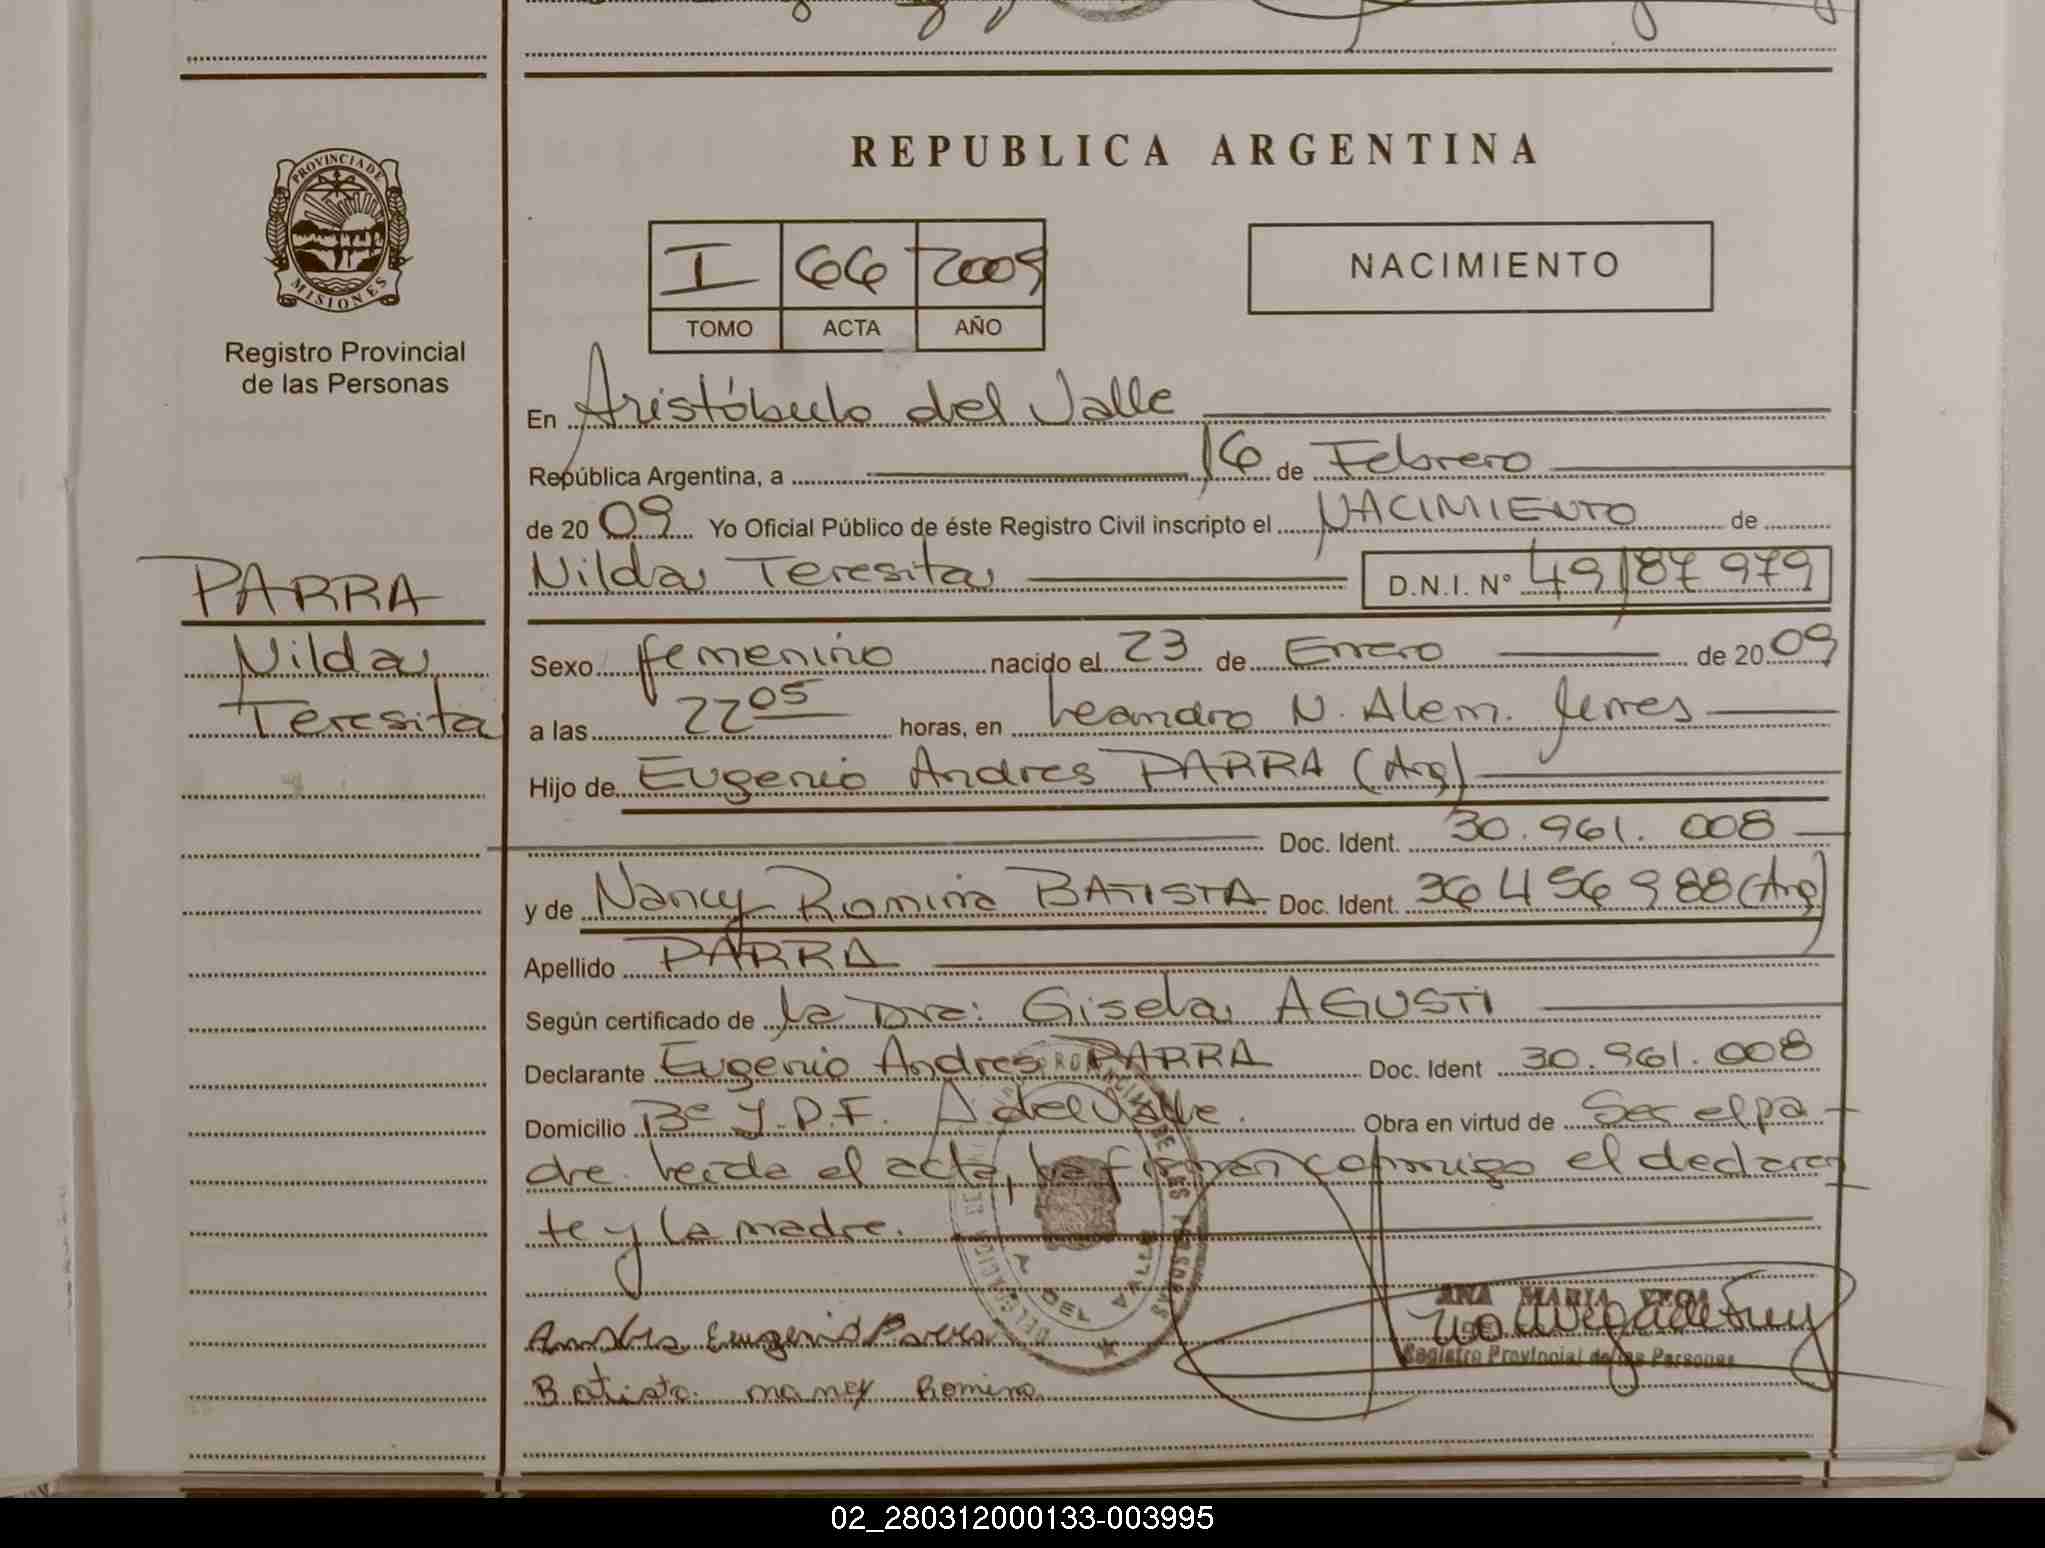 REPUBLICA ARGENTINA
PROVINCIA DE
MISIONES
Registro Provincial
de las Personas
I 66 2009
TOMO ACTA AÑO
NACIMIENTO
En Aristóbulo del Valle
República Argentina, a 16 de Febrero
de 2009 Yo Oficial Público de éste Registro Civil inscripto el NACIMIENTO de
PARRA
Nilda
Teresita
Nilda Teresita D.N.I. N° 49187979
Sexo femenino nacido el 23 de Enero de 2009
a las 22 05 horas, en Leandro N. Alem.
Hijo de Eugenio Andres PARRA (Arg)
Doc. Ident. 30.961.008
y de Nancy Romina BATISTA Doc. Ident. 36456988 (Arg)
Apellido PARRA
Según certificado de la Dra: Gisela AGUSTI
Declarante Eugenio Andres PARRA Doc. Ident 30.961.008
Domicilio Bº Y.P.F. A del Valle. Obra en virtud de Ser el pa-
dre. Leida el acta, la firman conmigo el declaran
te y la madre.
A. DEL VALLE
ANA MARIA VEGA
Registro Provincial de las Personas
Andres Eugenio Parra
Batista nancy Romina
02_280312000133-003995